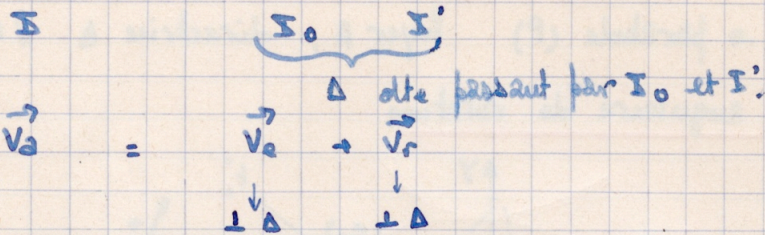 I I₀ I'
Δ dte passant par I₀ et I'.
Va⃗ = Ve⃗ + Vr⃗
↓ ↓
⊥ Δ ⊥ Δ